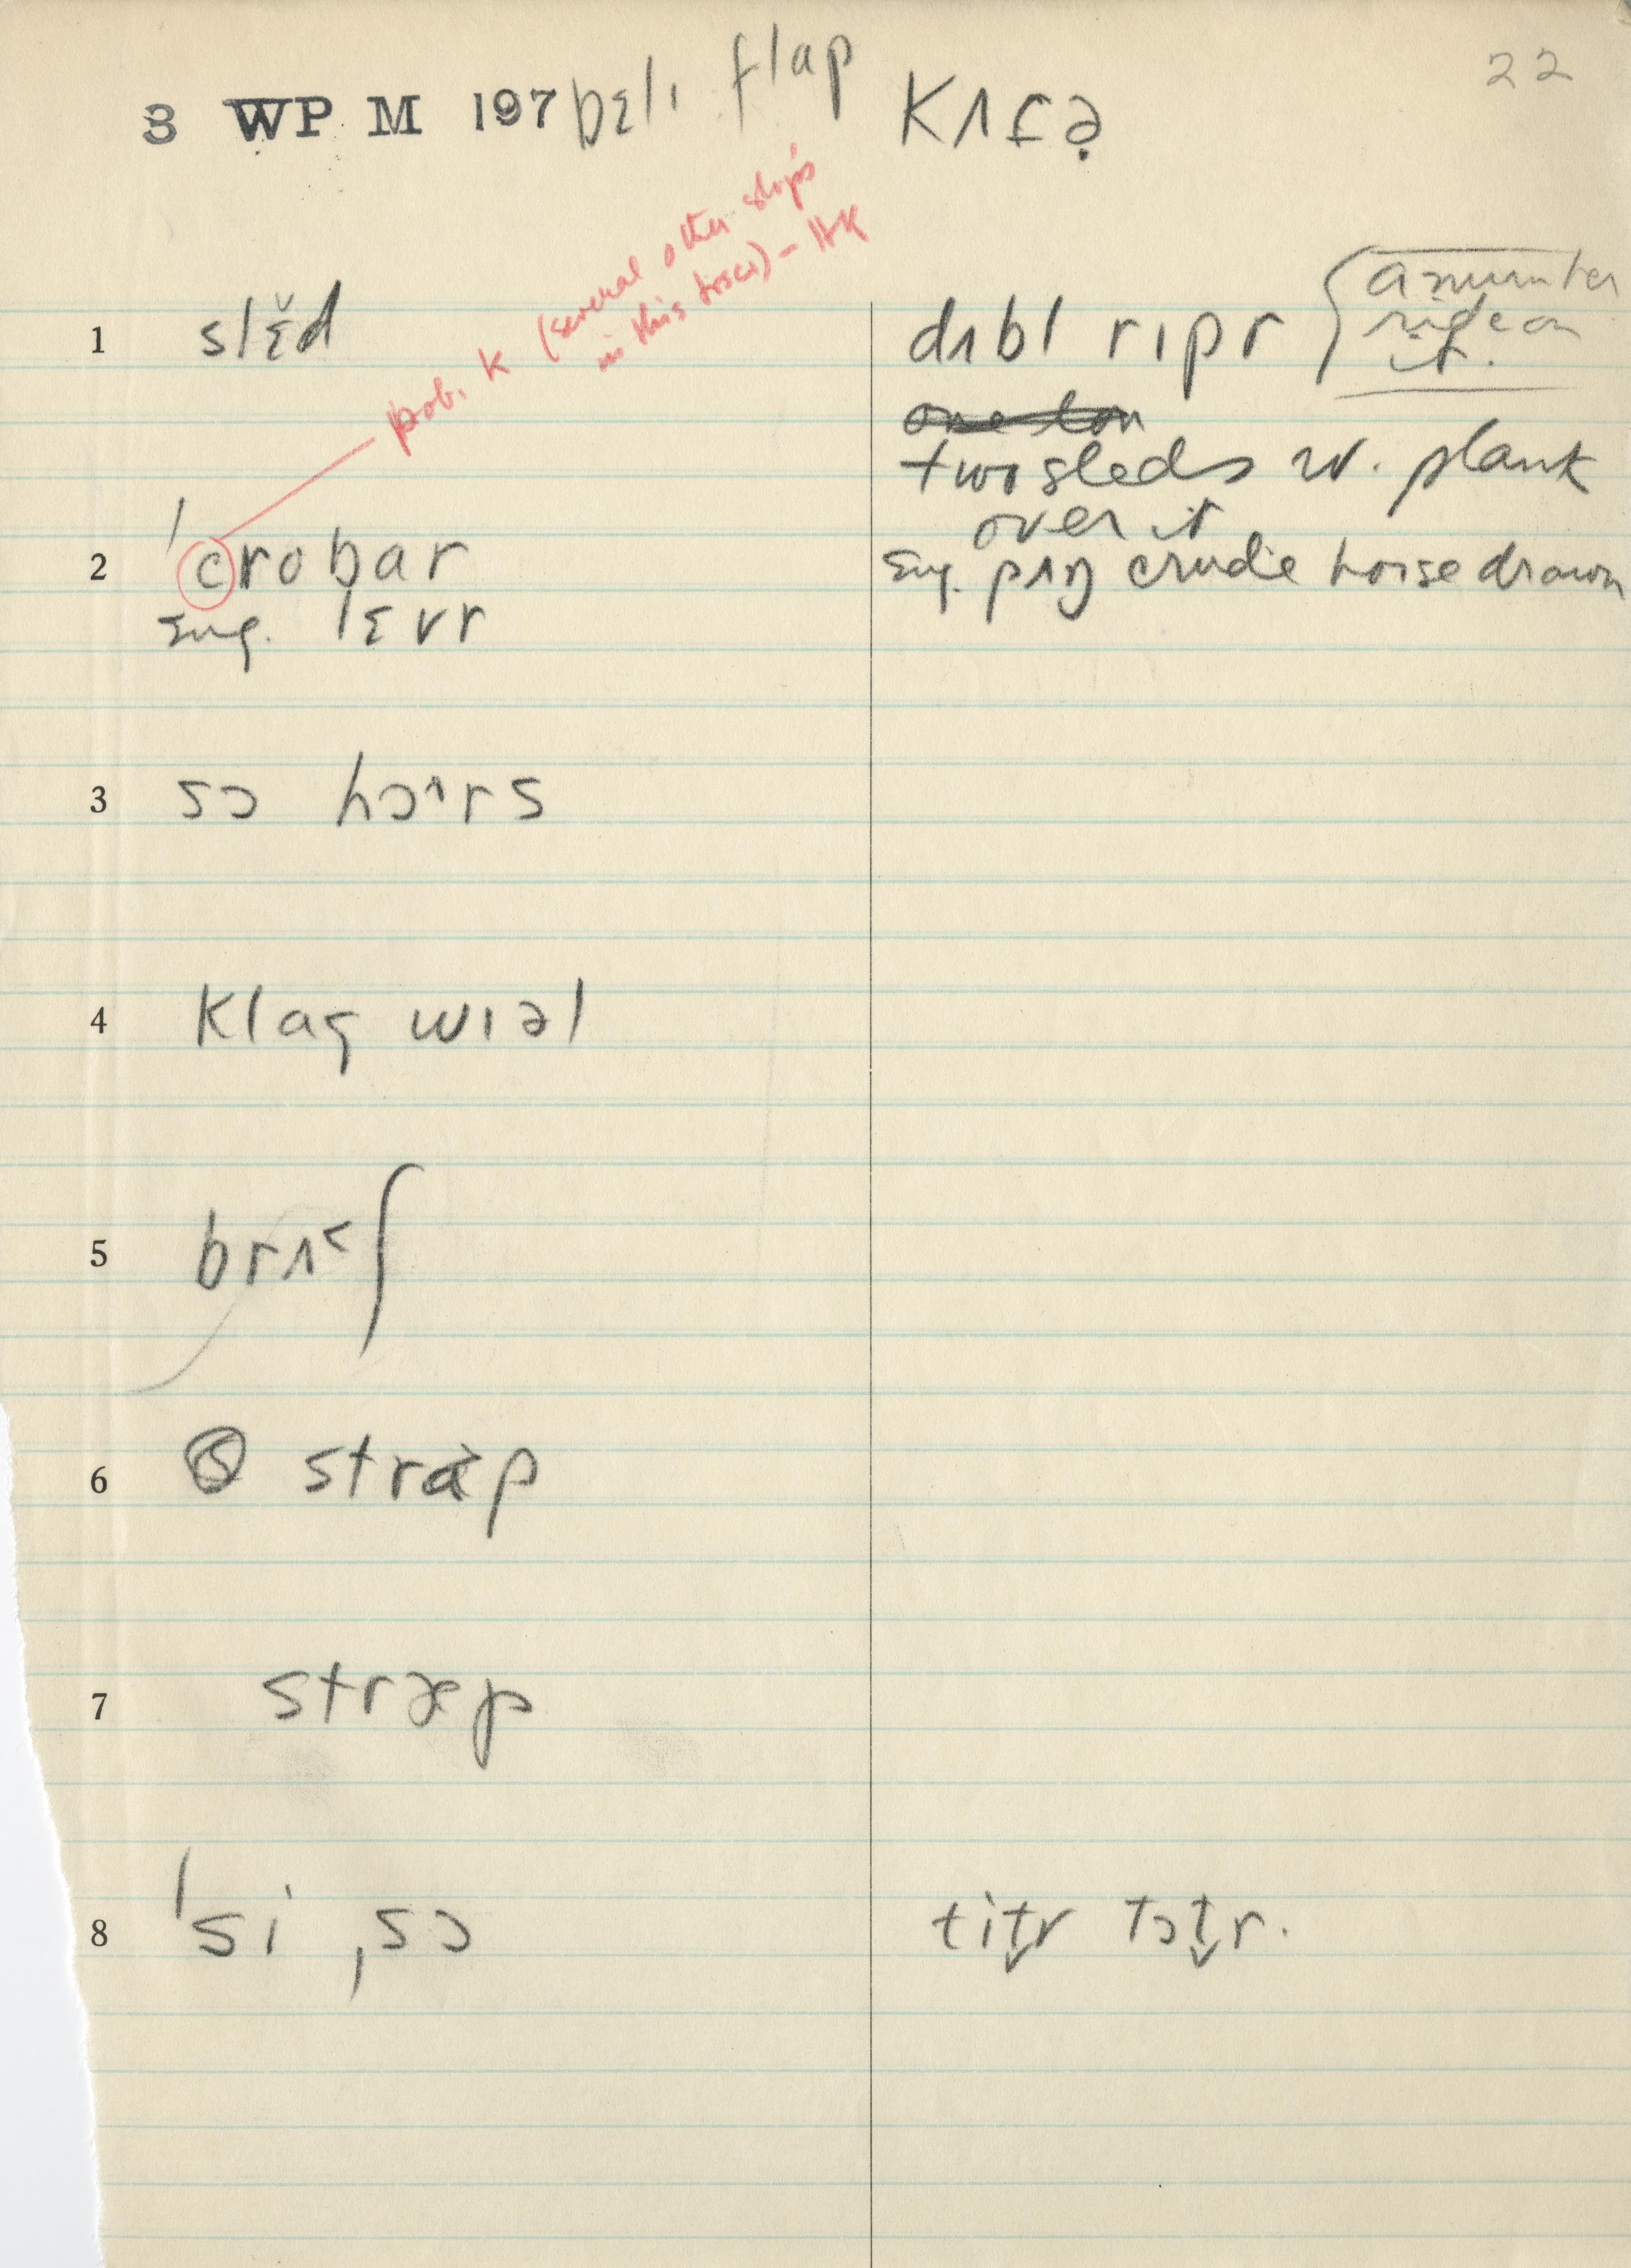 22
3 WP M 197 bɛlɪ flap Kʌfə̣
pob. K (several other slips
in this trsc) - HK
1 slɛ̆d
dʌbl rɪpr (a number
ride on
it.
one ton
two sleds w. plank
over it
2 ˈcrobar
sug. pʌŋ crude horse drawn
sug. lɛvr
3 sɔ hɔ^rs
4 klaɢ wɪəl
5 brʌ˂ʃ
6 Ⓢ strap
7 stræp
8 ˈsi ˌsɔ
tit̬r tɔt̬r.